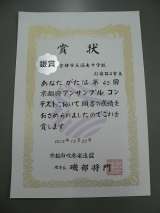 賞状
銀賞
あなたがたは第45回
京都府アンサンブルコン
テストにおいて頭書の成績を
おさめられましたのでこれを
賞します
京都府吹奏楽連盟
理事長 磯部将門